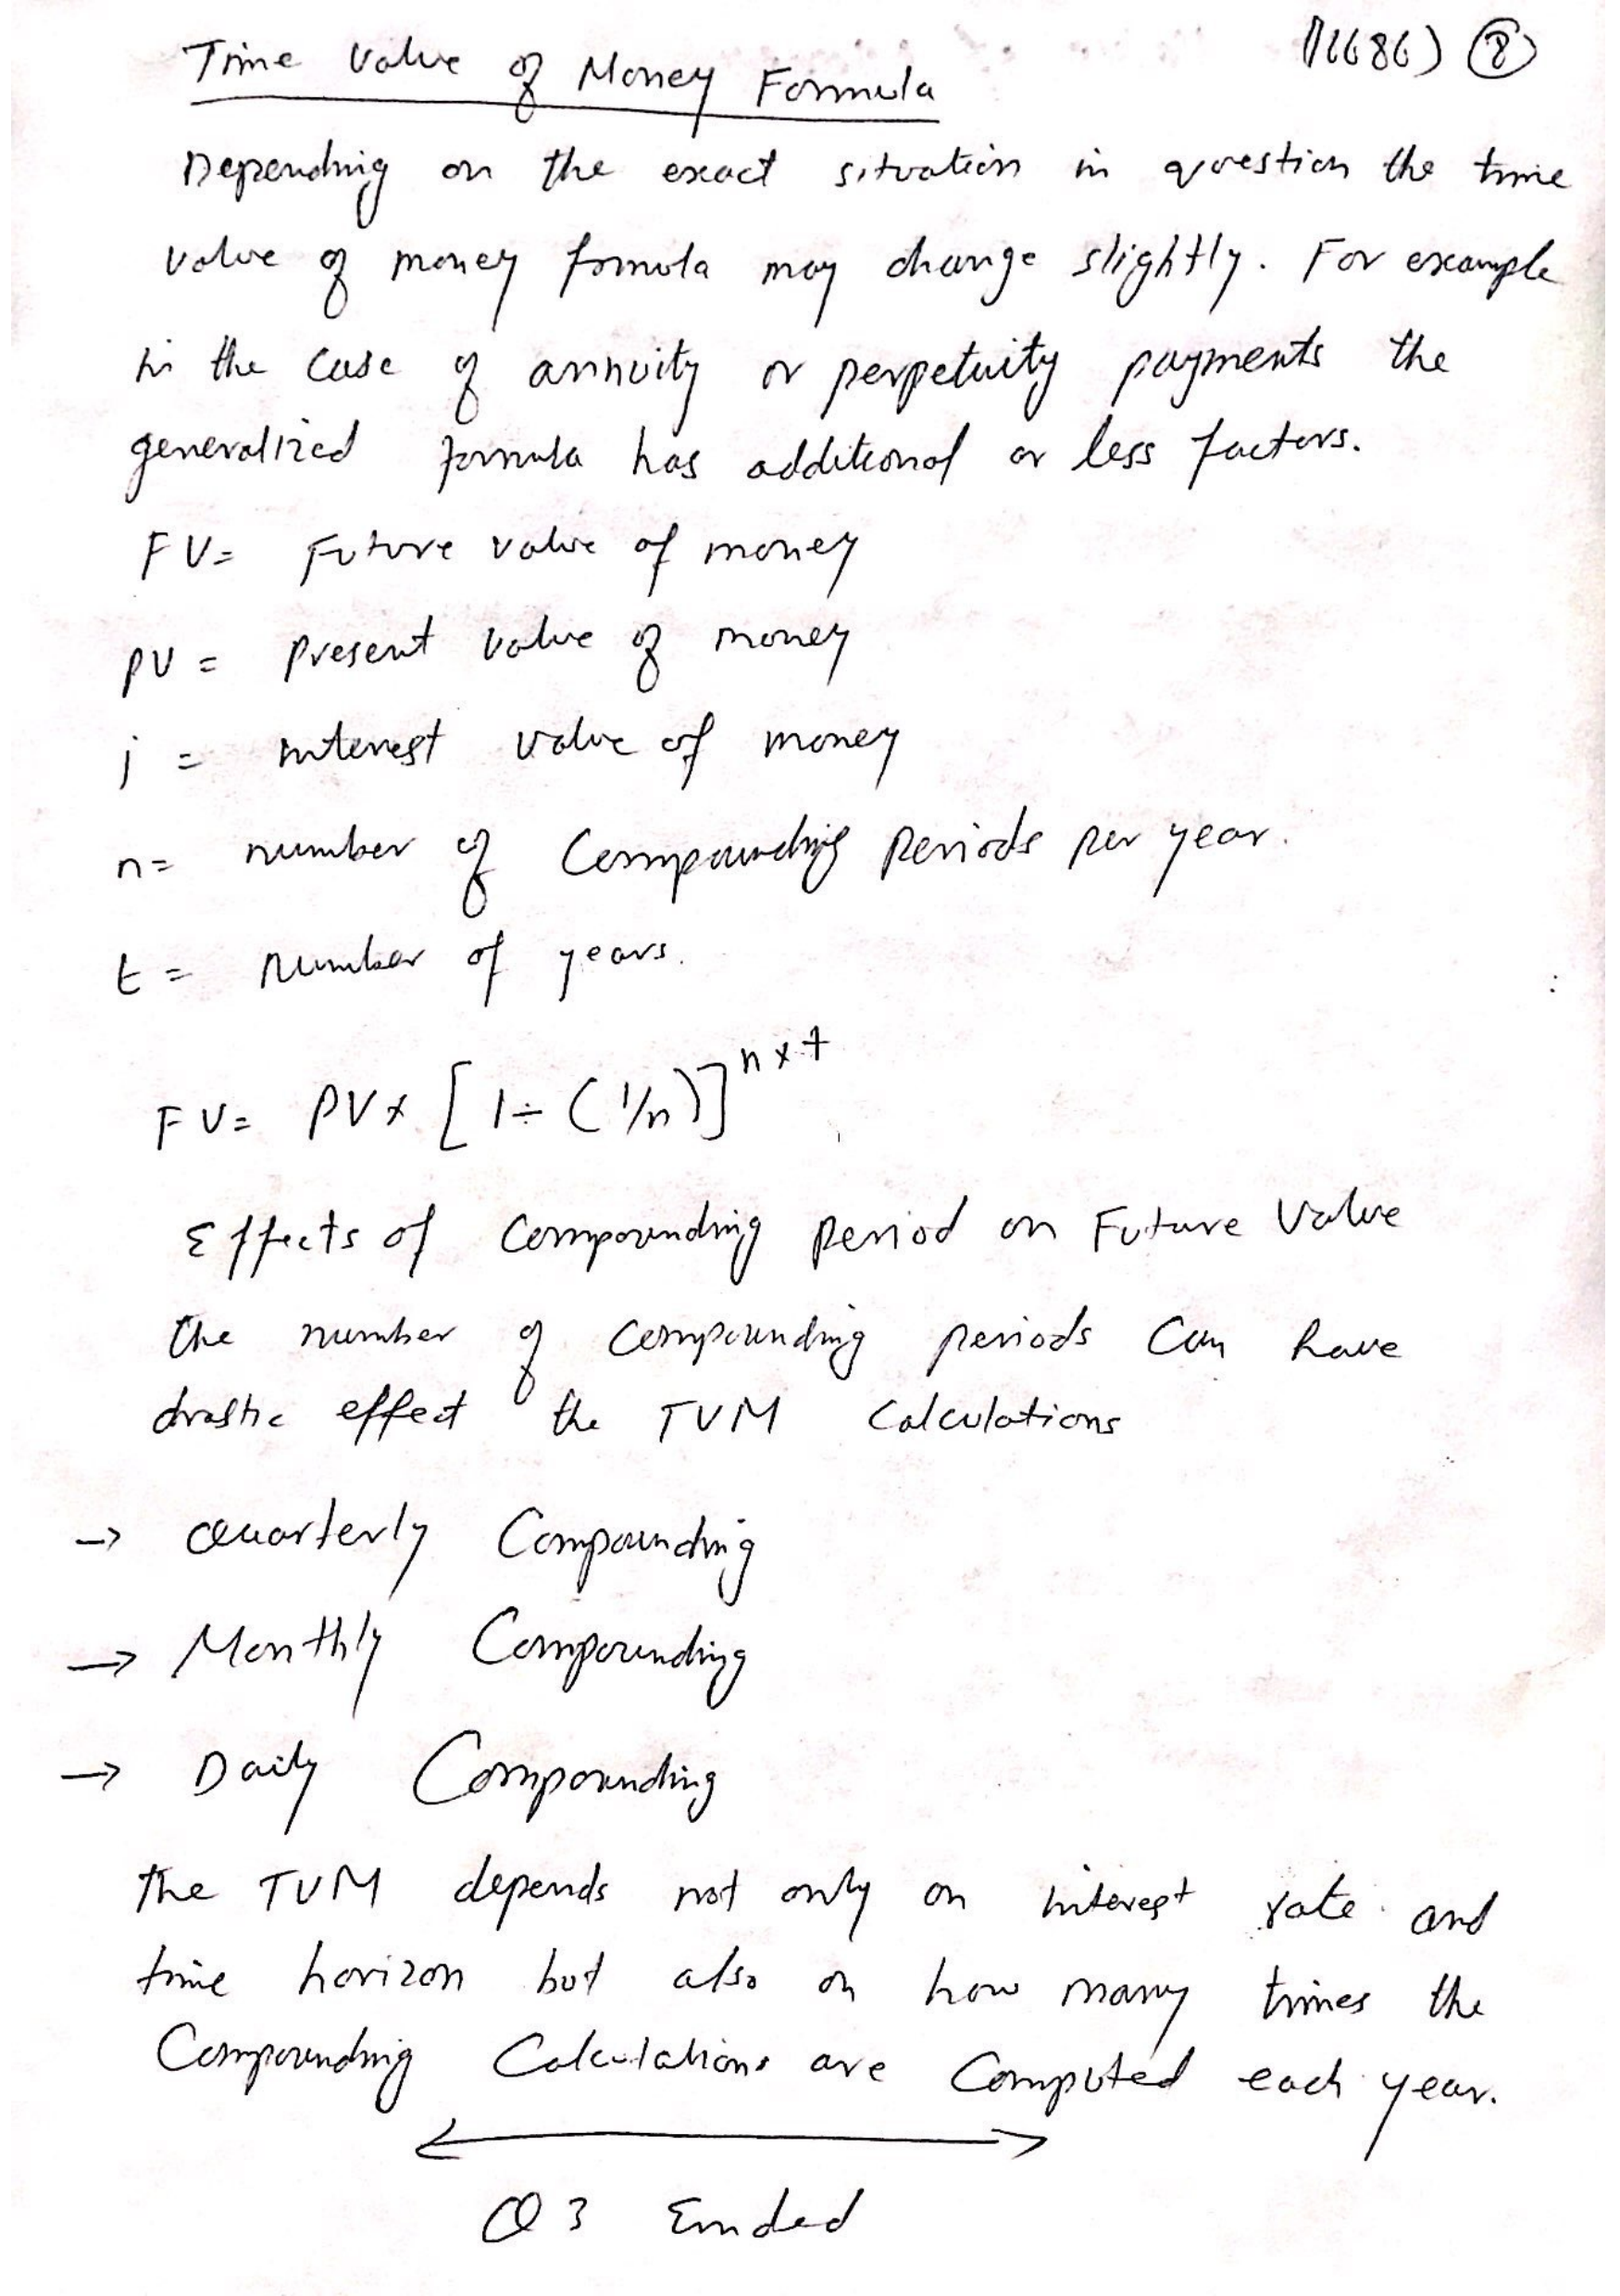 11686) 8
Time Value of Money Formula
Depending on the exact situation in question the time
value of money formula may change slightly. For example
in the case of annuity or perpetuity payments the
generalized formula has additional or less factors.
FV= Future value of money
PV = Present value of money
i = interest value of money
n= number of Compounding Periods per year.
t = Number of years.
FV= PV× [1÷(1/n)]^n×t
Effects of Compounding Period on Future Value
the number of compounding periods can have
drastic effect the TVM Calculations
→ Quarterly Compounding
→ Monthly Compounding
→ Daily Compounding
the TVM depends not only on interest rate and
time horizon but also on how many times the
Compounding Calculations are Computed each year.
Q3 Ended